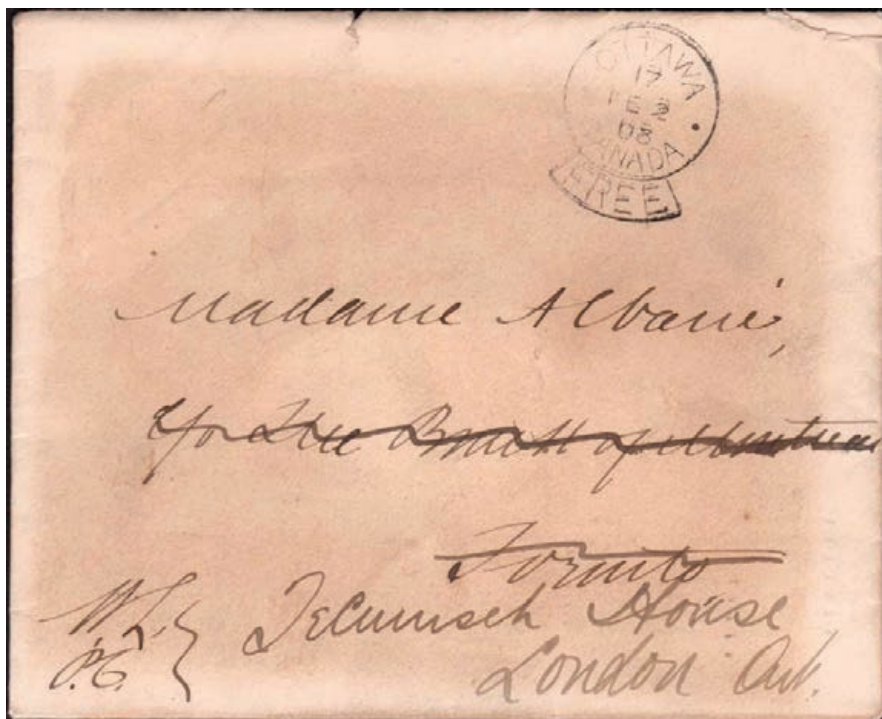 OTTAWA
17
FE 2
08
CANADA
FREE
Madame Albani,
c/o The Bank of Montreal
Toronto
Tecumseh House
London Ont.
W.L.
P.C.